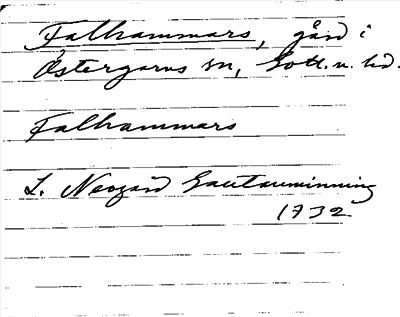 Falhammars, gård i
Östergarns sn, Gotl. n. hd.
Falhammars
L. Neogård Gautauminning
1732